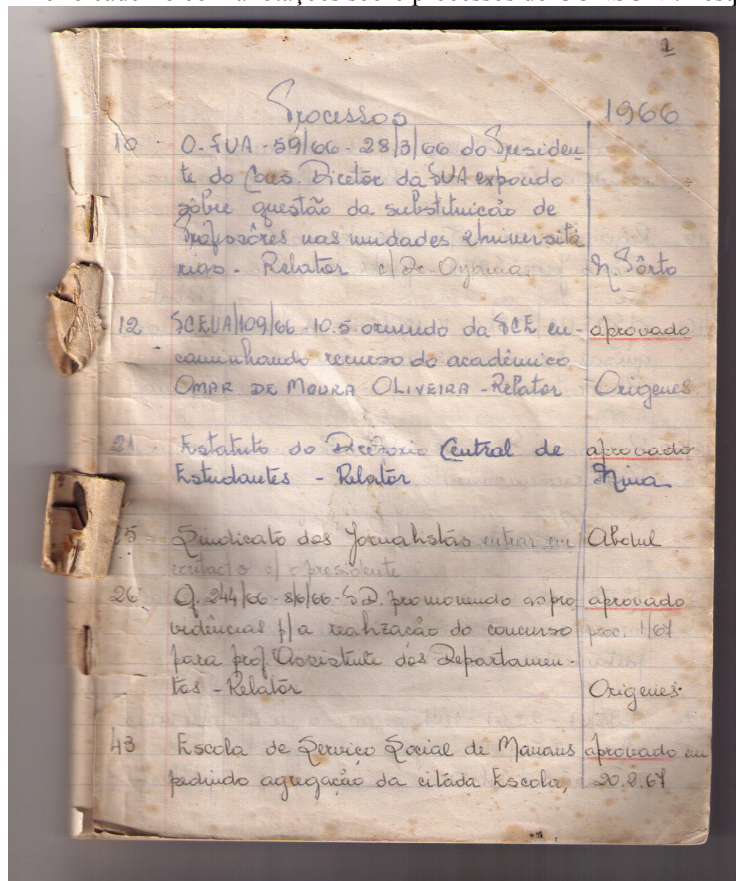 1
Processos 1966
10 - O. FUA - 59/66 - 28/3/66 do Presiden
te do Cons. Diretor da FUA expondo
sôbre questão da substituição de
Professôres nas unidades Universitá
rias - Relator c/ Dr. N. Pôrto
12 FCEUA/109/66 - 10.5 oriundo da FCE en- aprovado
caminhando recurso do acadêmico
OMAR DE MOURA OLIVEIRA - Relator Origenes
21 - Estatuto do Diretorio Central de aprovado
Estudantes - Relatôr Nina
25 - Sindicato dos Jornalistas entrar em Abdul
contacto c/ o presidente
26 - O. 244/66 - 8/6/66 - F.D. promovendo as pro aprovado
vidências p/ a realização do concurso proc. 1/67
para prof. Assistente dos Departamen-
tos - Relatôr Origenes.
43 Escola de Serviço Social de Manaus aprovado em
pedindo agregação da citada Escola, 20.2.67